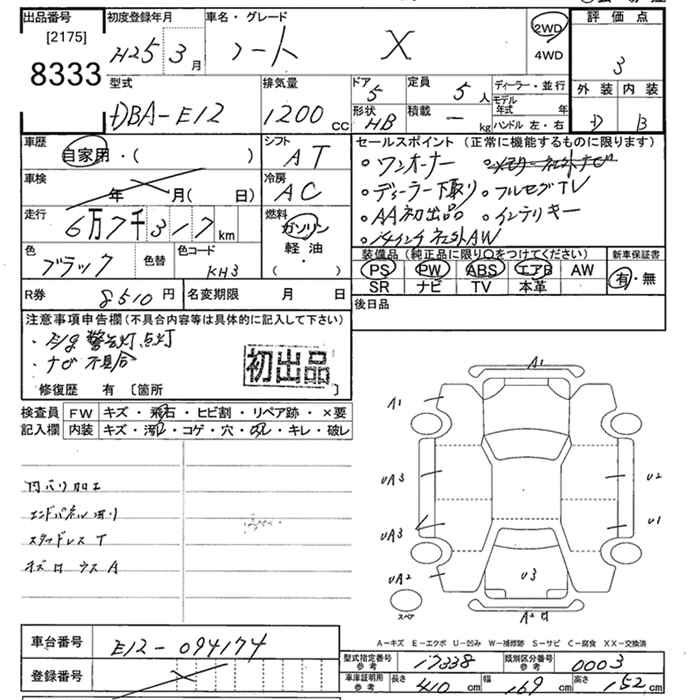 出品番号
[2175]
8333
初度登録年月
H25 3 月
車名・グレード
ノート X
2WD
4WD
評価点
3
外装 内装
D B
型式
DBA-E12
排気量
1200 CC
ドア 5
形状 HB
定員 5 人
積載 ー kg
ディーラー・並行
モデル年式 年
ハンドル 左・右
車歴
自家用・( )
シフト
AT
セールスポイント (正常に機能するものに限ります)
。ワンオーナー
。ディーラー下取り 。フルセグTV
。AA初出品 。インテリキー
車検
年 月( 日)
冷房
AC
走行
6万7千317 km
燃料
ガソリン
軽油
( ・ )
色
ブラック
色替
色コード
KH3
装備品(純正品に限り○をつけてください)
PS PW ABS エアB AW
SR ナビ TV 本革
新車保証書
有・無
R券 8510 円
名変期限 月 日
後日品
注意事項申告欄(不具合内容等は具体的に記入して下さい)
警告灯点灯
・ナビ不具合
初出品
修復歴 有 〔箇所 〕
検査員 FW キズ・飛石・ヒビ割・リペア跡・×要
記入欄 内装 キズ・汚れ・コゲ・穴・凹み・キレ・破レ
スタッドレスT
A1
A1
UA3
U2
UA3
U1
UA2
U3
スペア
A2
A-キズ E-エクボ U-凹み W-補修跡 S-サビ C-腐食 XX-交換済
車台番号 E12-094174
登録番号
型式指定番号 参考 17338
類別区分番号 参考 0003
車庫証明用 参考 長さ 410 cm 幅 169 cm 高さ 152 cm